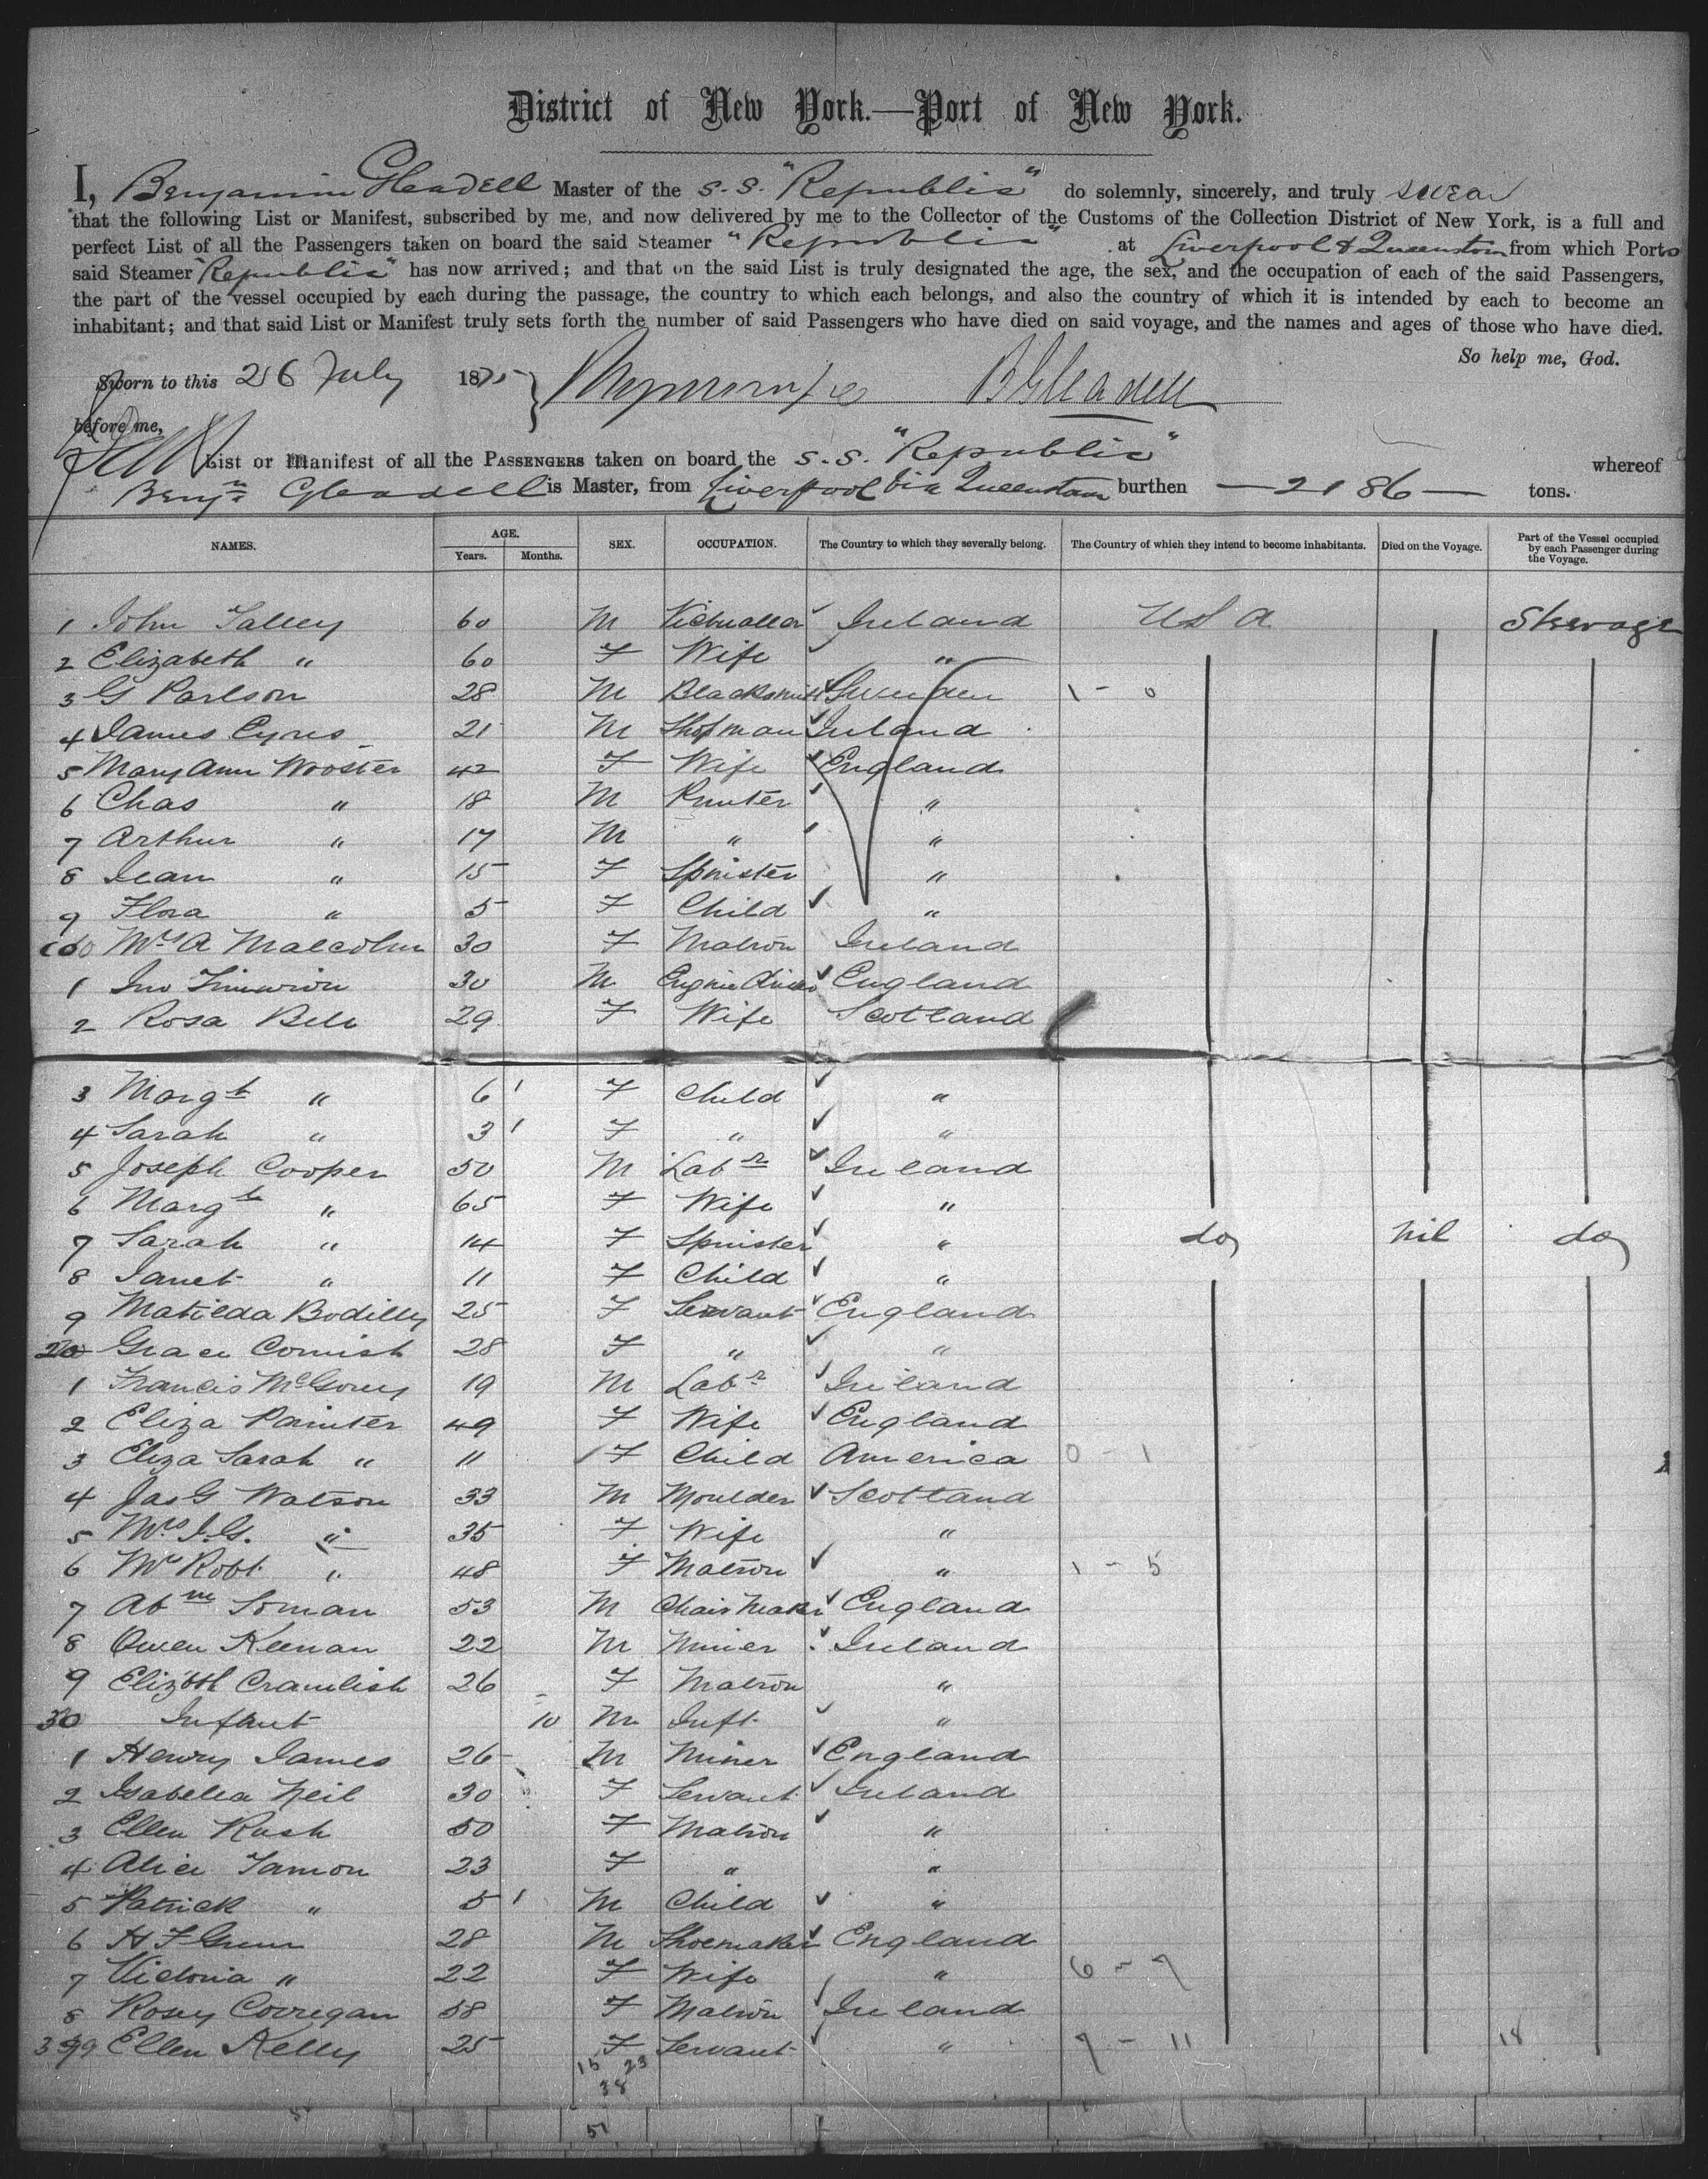 District of New York.—Port of New York.
I, Benjamin Gleadell Master of the S.S. "Republic" do solemnly, sincerely, and truly swear
that the following List or Manifest, subscribed by me, and now delivered by me to the Collector of the Customs of the Collection District of New York, is a full and
perfect List of all the Passengers taken on board the said Steamer "Republic" at Liverpool & Queenstown from which Ports
said Steamer "Republic" has now arrived; and that on the said List is truly designated the age, the sex, and the occupation of each of the said Passengers,
the part of the vessel occupied by each during the passage, the country to which each belongs, and also the country of which it is intended by each to become an
inhabitant; and that said List or Manifest truly sets forth the number of said Passengers who have died on said voyage, and the names and ages of those who have died.
So help me, God.
Sworn to this 26 July 1875 B Gleadell
before me,
List or Manifest of all the PASSENGERS taken on board the S.S. "Republic" whereof
Benjn Gleadell is Master, from Liverpool via Queenstown burthen — 2186 — tons.
NAMES. AGE. Years. Months. SEX. OCCUPATION. The Country to which they severally belong. The Country of which they intend to become inhabitants. Died on the Voyage. Part of the Vessel occupied by each Passenger during the Voyage.
1 John Talley 60 M Victualler Ireland USA Steerage
2 Elizabeth " 60 F Wife "
3 G Parlson 28 M Blacksmith Sweden 1 - 0
4 James Eyres 21 M Shopman Ireland
5 Mary Ann Wooster 42 F Wife England
6 Chas " 18 M Printer "
7 Arthur " 17 M " "
8 Jean " 15 F Spinster "
9 Flora " 5 F Child "
Mrs A Malcolm 30 F Matron Ireland
1 Jno 30 M Engine Driver England
2 Rosa Bell 29 F Wife Scotland
3 Margt " 6 F Child "
4 Sarah " 3 F " "
5 Joseph Cooper 50 M Labr Ireland
6 Margt " 65 F Wife "
7 Sarah " 14 F Spinster " do nil do
8 Janet " 11 F Child "
9 Matilda Bodilly 25 F Servant England
20 Grace Cornish 28 F " "
1 Francis McGorry 19 M Labr Ireland
2 Eliza Painter 49 F Wife England
3 Eliza Sarah " 11 F Child America 0 - 1
4 Jas G Watson 33 M Moulder Scotland
5 Mrs J.G. " 35 F Wife "
6 Mrs Robt " 48 F Matron " 1 - 5
7 Abm Soman 53 M Chair Maker England
8 Owen Keenan 22 M Miner Ireland
9 Elizbth Cramlish 26 F Matron "
30 Infant 10 M Inft "
1 Henry James 26 M Miner England
2 Isabella Neil 30 F Servant Ireland
3 Ellen Rush 50 F Matron "
4 Alice Tamon 23 F " "
5 Patrick " 5 M Child "
6 H F Green 28 M Shoemaker England
7 Victoria " 22 F Wife " 6 - 7
8 Rosey Corregan 58 F Matron Ireland
399 Ellen Kelly 25 F Servant " 7 - 11 18
15 23
38